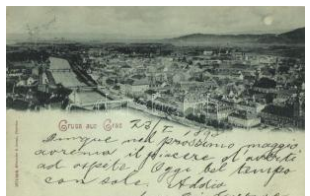 Gruss aus Graz 23/I 1898
Dunque nel prossimo maggio
avremo il piacere di averti
ad ospite. Oggi bel tempo
con sole. Addio